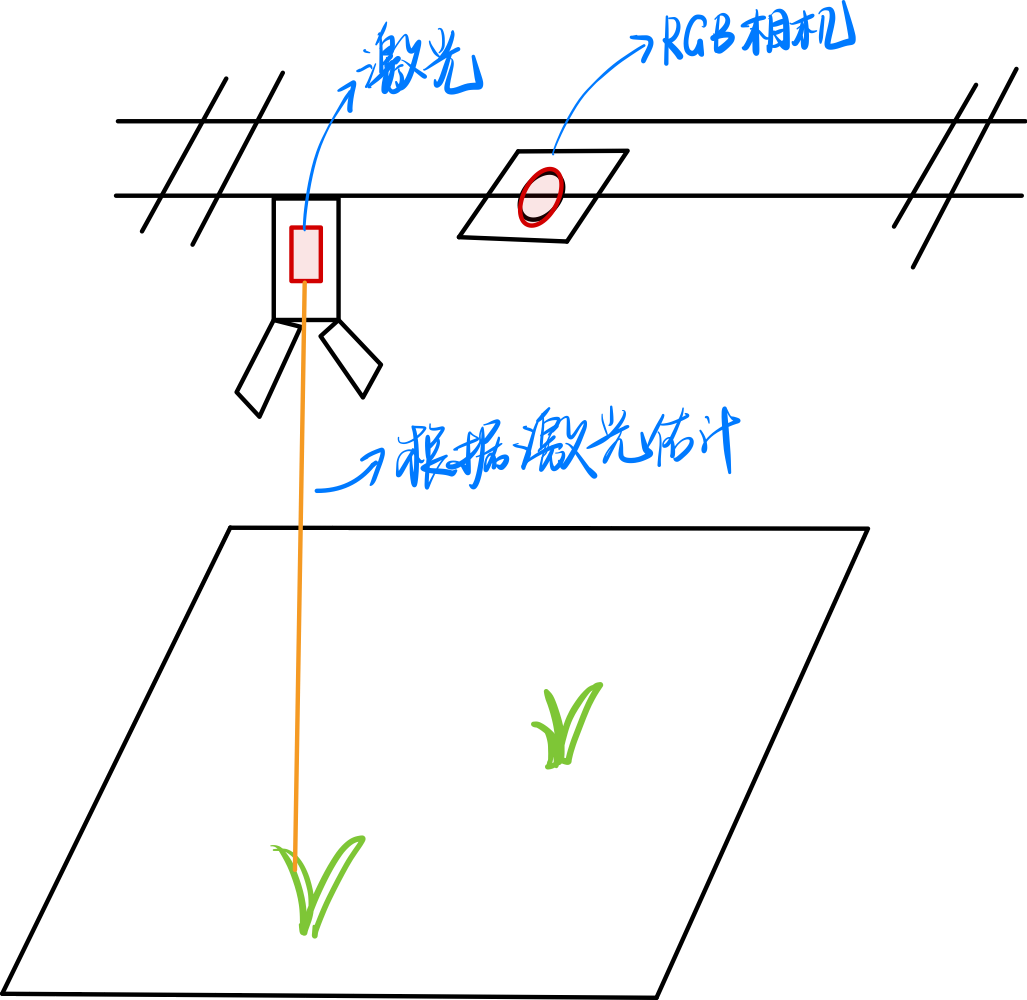 激光
RGB相机
根据激光估计